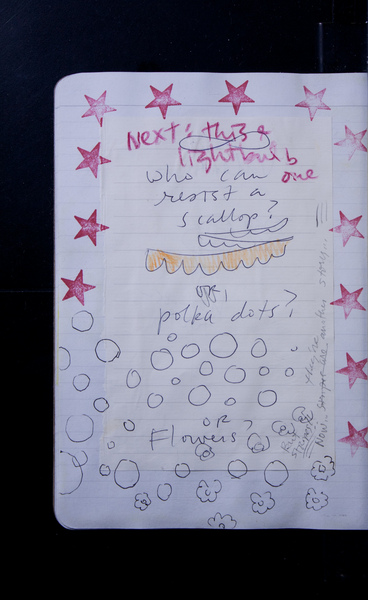 Next: this
lightbulb
one
who can
resist a
scallop?
or,
polka dots?
OR
Flowers?
Now...